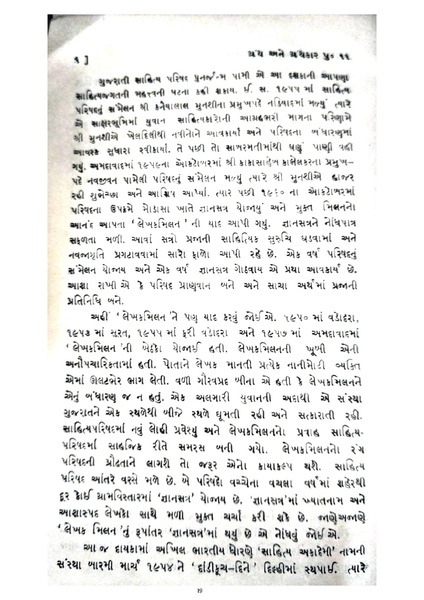 ૧ ] ગ્રંથ અને ગ્રંથકાર પુ૦ ૧૧
ગુજરાતી સાહિત્ય પરિષદ પુનર્જન્મ પામી એ આ દસકાની આપણા
સાહિત્યજગતની મહત્ત્વની ઘટના કહી શકાય. ઈ. સ. ૧૯૫૫માં સાહિત્ય
પરિષદનું સંમેલન શ્રી કનૈયાલાલ મુનશીના પ્રમુખપદે નડિયાદમાં મળ્યું ત્યારે
એ સાક્ષરભૂમિમાં યુવાન સાહિત્યકારોની આગ્રહભરી માગના પરિણામે
શ્રી મુનશીએ ખેલદિલીથી નવીનોને આવકાર્યા અને પરિષદના બંધારણમાં
આવશ્યક સુધારા સ્વીકાર્યા. તે પછી તો સાબરમતીમાંથી ઘણું પાણી વહી
ગયું. અમદાવાદમાં ૧૯૫૯ના ઑક્ટોબરમાં શ્રી કાકાસાહેબ કાલેલકરના પ્રમુખ-
પદે નવજીવન પામેલી પરિષદનું સંમેલન મળ્યું ત્યારે શ્રી મુનશીએ હાજર
રહી શુભેચ્છા અને આશિષ આપ્યાં. ત્યાર પછી ૧૯૬૦ના ઑક્ટોબરમાં
પરિષદના ઉપક્રમે મોડાસા ખાતે જ્ઞાનસત્ર યોજાયું અને મુક્ત મિલનનો
આનંદ આપતા 'લેખકમિલન'ની યાદ આપી ગયું. જ્ઞાનસત્રને નોંધપાત્ર
સફળતા મળી. આવાં સત્રો પ્રજાની સાહિત્યિક સુરુચિ ઘડવામાં અને
નવજાગૃતિ પ્રગટાવવામાં સારો ફાળો આપી રહે છે. એક વર્ષ પરિષદનું
સંમેલન યોજાય અને એક વર્ષ જ્ઞાનસત્ર ગોઠવાય એ પ્રથા આવકાર્ય છે.
આશા રાખીએ કે પરિષદ પ્રાણવાન બને અને સાચા અર્થમાં પ્રજાની
પ્રતિનિધિ બને.
અહીં 'લેખકમિલન'ને પણ યાદ કરવું જોઈએ. ૧૯૫૦માં વડોદરા,
૧૯૫૩માં સુરત, ૧૯૫૫માં ફરી વડોદરા અને ૧૯૫૭માં અમદાવાદમાં
'લેખકમિલન'ની બેઠકો યોજાઈ હતી. લેખકમિલનની ખૂબી એની
અનૌપચારિકતામાં હતી. પોતાને લેખક માનતી પ્રત્યેક નાનીમોટી વ્યક્તિ
એમાં ઊલટભેર ભાગ લેતી. વળી ગૌરવપ્રદ બીના એ હતી કે લેખકમિલનને
એનું બંધારણ જ ન હતું. એક અલગારી યુવાનની અદાથી એ સંસ્થા
ગુજરાતને એક સ્થળેથી બીજે સ્થળે ઘૂમતી રહી અને સત્કારાતી રહી.
સાહિત્યપરિષદમાં નવું લોહી પ્રવેશ્યું અને લેખકમિલનનો પ્રવાહ સાહિત્ય-
પરિષદમાં સાહજિક રીતે સમરસ બની ગયો. લેખકમિલનનો રંગ
પરિષદની પ્રૌઢતાને લાગશે તો જરૂર એનો કાયાકલ્પ થશે. સાહિત્ય
પરિષદ આંતરે વરસે મળે છે. બે પરિષદો વચ્ચેના વચલા વર્ષમાં શહેરથી
દૂર કોઈ ગ્રામવિસ્તારમાં 'જ્ઞાનસત્ર' યોજાય છે. 'જ્ઞાનસત્ર'માં ખ્યાતનામ અને
આશાસ્પદ લેખકો સાથે મળી મુક્ત ચર્ચા કરી શકે છે. જાણેઅજાણે
'લેખક મિલન'નું રૂપાંતર 'જ્ઞાનસત્ર'માં થયું છે એ નોંધવું જોઈએ.
આ જ દાયકામાં અખિલ ભારતીય ધોરણે 'સાહિત્ય અકાદેમી' નામની
સંસ્થા બારમી માર્ચ ૧૯૫૪ને 'દાંડીકૂચ-દિને' દિલ્હીમાં સ્થપાઈ. ત્યારે